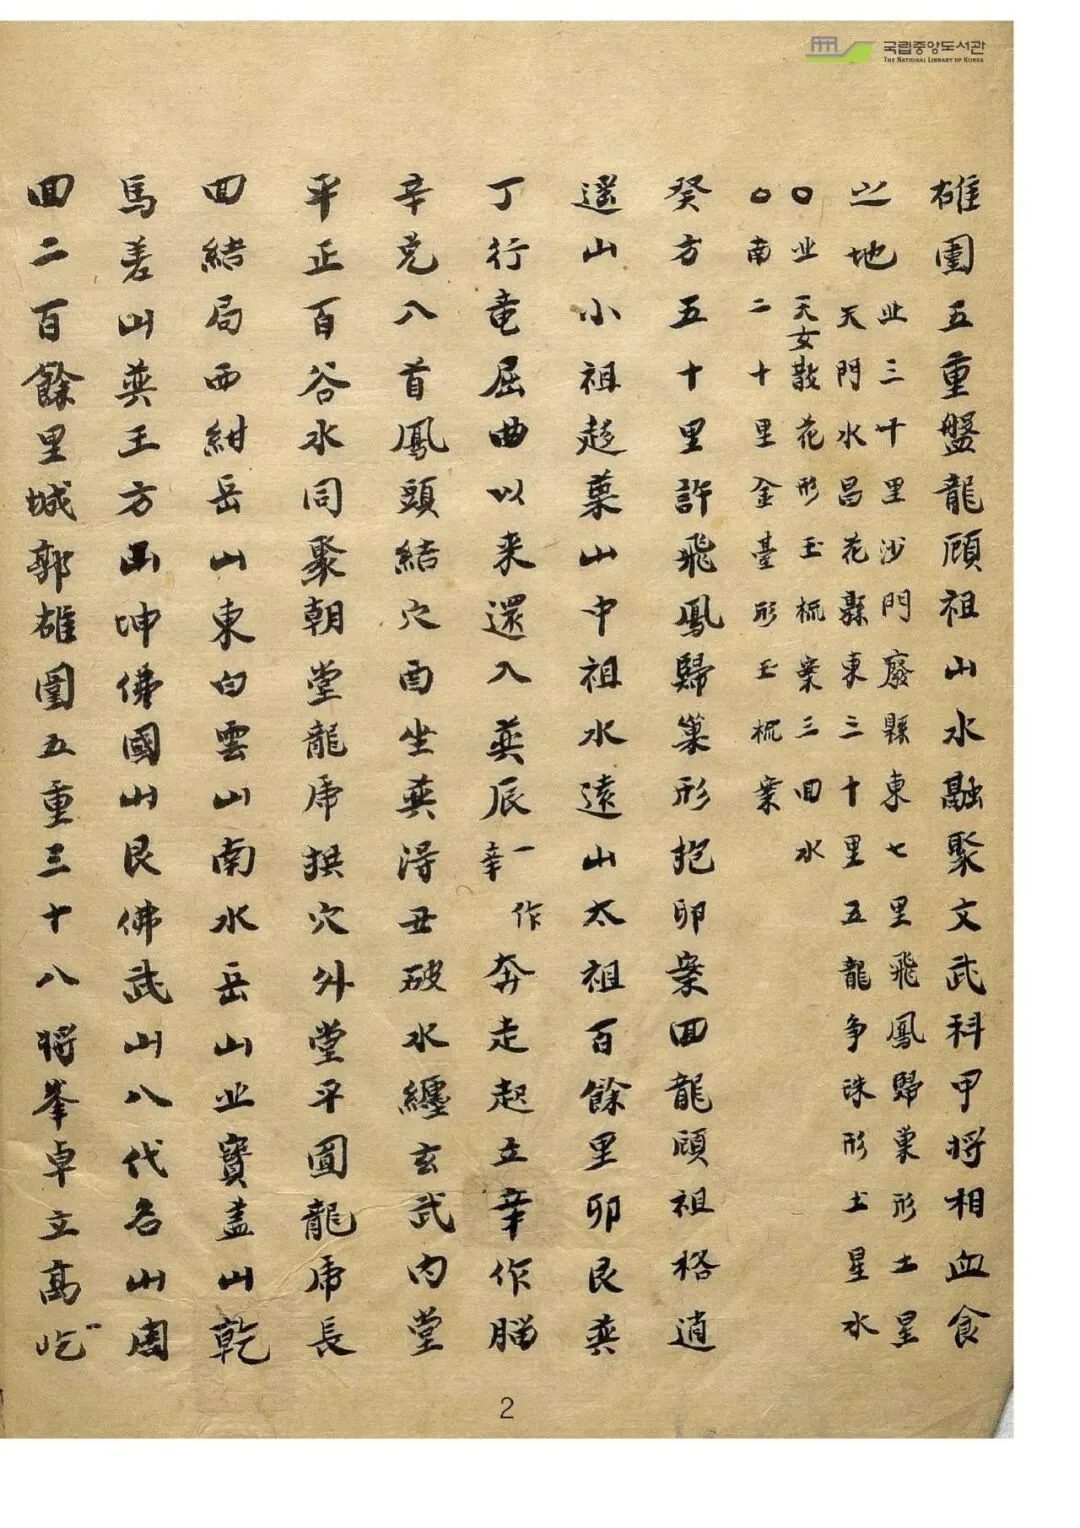 국립중앙도서관
THE NATIONAL LIBRARY OF KOREA
雄圍五重盤龍頋祖山水融聚文武科甲将相血食
之地
业三十里沙門廢縣東七里飛鳳歸巢形土星
天門水昌花縣東三十里五龍争珠形土星水
〇业天女散花形玉梳案三回水
〇南二十里金臺形玉梳案
癸方五十里許飛鳳歸巢形抱卵案回龍頋祖格逍
遥山小祖起菓山中祖水遠山太祖百餘里卯艮巽
丁行竜屈曲以来還入巽辰
一作
幸
奔走起立辛作腦
辛兑八首鳳頭結穴酉坐巽得丑破水纏玄武内堂
平正百谷水同聚朝堂龍虎拱穴外堂平圓龍虎長
回結局西紺岳山東白雲山南水岳山业寶盖山乾
馬差山巽王方山坤佛國山艮佛武山八代名山周
回二百餘里城郭雄圍五重三十八将峯卓立高屹
2